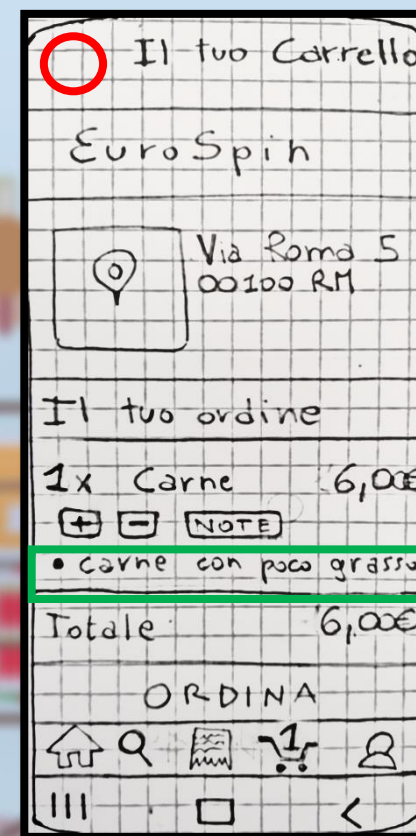 Il tuo Carrello
EuroSpin
Via Roma 5
00100 RM
Il tuo ordine
1x Carne 6,00€
+ - NOTE
• carne con poco grasso
Totale 6,00€
ORDINA
1